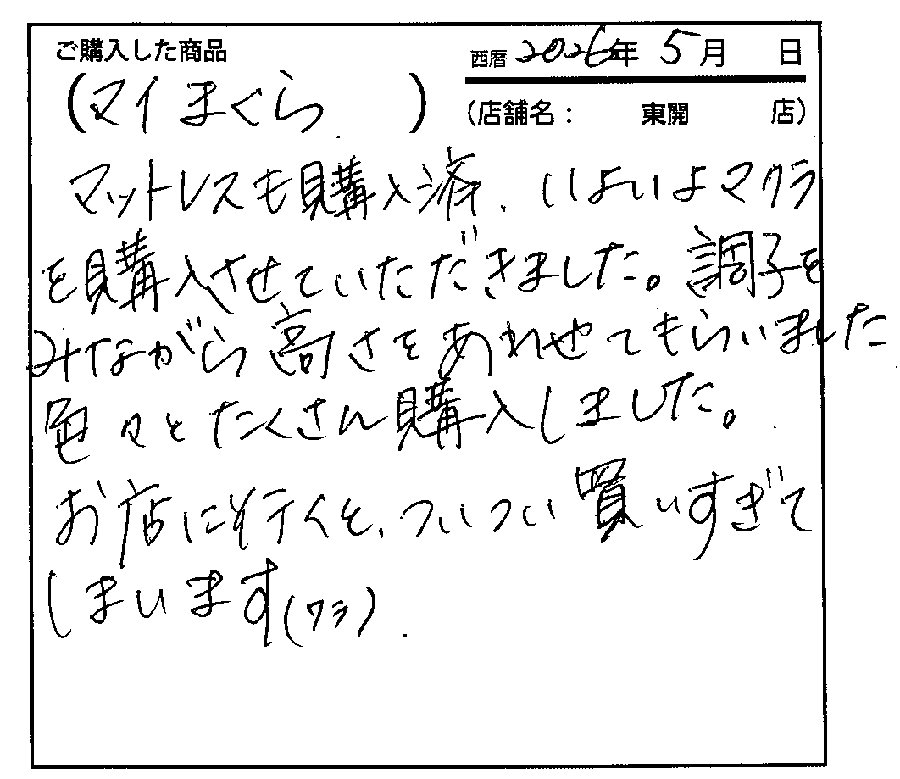 ご購入した商品
西暦 2026年 5月 日
(マイまくら)
(店舗名: 東開 店)
マットレスも購入済、いよいよマクラ
を購入させていただきました。調子を
みながら高さをあわせてもらいました
色々とたくさん購入しました。
お店に行くと、ついつい買いすぎて
しまいます(ワラ).